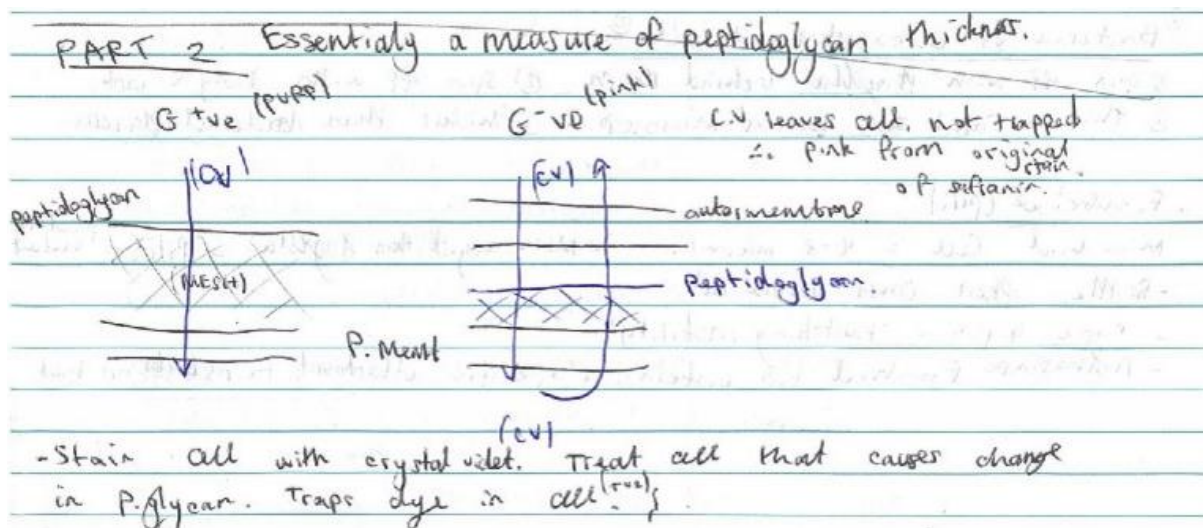 PART 2 Essentialy a measure of peptidoglycan thickness.
G +ve (purp) G -ve (pink) C.V. leaves cell. not trapped
∴ pink from original stain
of safranin.
(CV) (CV)
peptidoglycan
outermembrane
(MESH)
peptidoglycan
P. Memb
(CV)
- Stain cell with crystal violet. Treat cell that causes change
in P.glycan. Traps dye in cell (+ve)